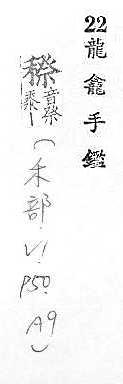 22龍龕手鑑
穄音祭黍丨(禾部.V1.P50.A9)